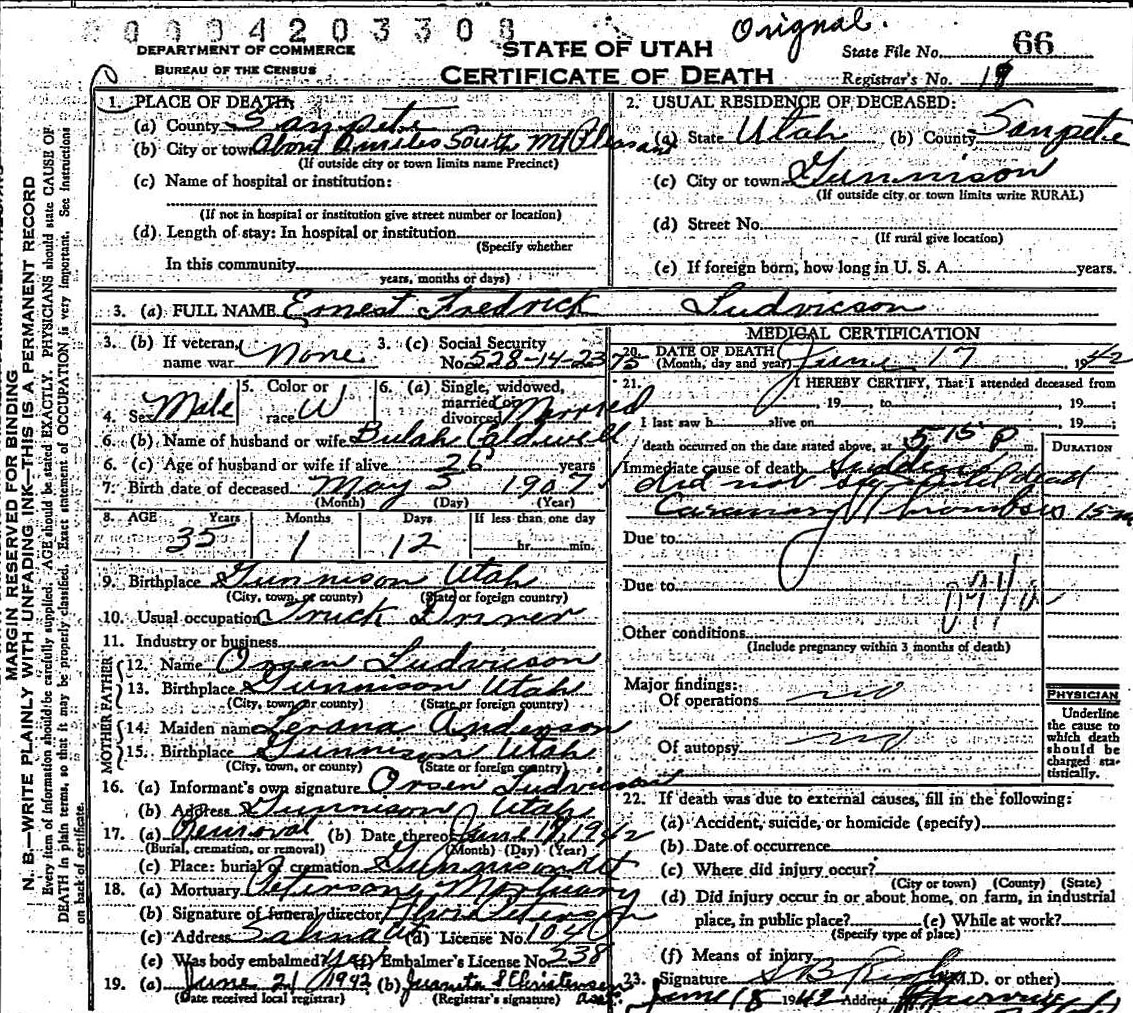 0004203308
Orignal.
DEPARTMENT OF COMMERCE
BUREAU OF THE CENSUS
STATE OF UTAH
CERTIFICATE OF DEATH
State File No. 66
Registrar's No. 19
MARGIN RESERVED FOR BINDING
N. B.—WRITE PLAINLY WITH UNFADING INK—THIS IS A PERMANENT RECORD
Every item of information should be carefully supplied. AGE should be stated EXACTLY. PHYSICIANS should state CAUSE OF
DEATH in plain terms, so that it may be properly classified. Exact statement of OCCUPATION is very important. See instructions
on back of certificate.
1. PLACE OF DEATH:
(a) County Sanpete
(b) City or town About miles South Mt Pleasant
(If outside city or town limits name Precinct)
(c) Name of hospital or institution:
(If not in hospital or institution give street number or location)
(d) Length of stay: In hospital or institution
(Specify whether
In this community
years, months or days)
2. USUAL RESIDENCE OF DECEASED:
(a) State Utah (b) County Sanpete
(c) City or town Gunnison
(If outside city or town limits write RURAL)
(d) Street No.
(If rural give location)
(e) If foreign born, how long in U. S. A. years.
3. (a) FULL NAME Ernest Fredrick Ludvicson
3. (b) If veteran, name war None
3. (c) Social Security No. 528-14-2375
4. Sex Male
5. Color or race W
6. (a) Single, widowed, married or divorced Married
6. (b) Name of husband or wife Bulah Caldwell
6. (c) Age of husband or wife if alive 26 years
7. Birth date of deceased May 5 1907
(Month) (Day) (Year)
8. AGE Years Months Days If less than one day
35 1 12 hr. min.
9. Birthplace Gunnison Utah
(City, town, or county) (State or foreign country)
10. Usual occupation Truck Driver
11. Industry or business
FATHER
12. Name Orsen Ludvicson
13. Birthplace Gunnison Utah
(City, town, or county) (State or foreign country)
MOTHER
14. Maiden name Anderson
15. Birthplace Gunnison Utah
(City, town, or county) (State or foreign country)
16. (a) Informant's own signature Orsen Ludvicson
(b) Address Gunnison Utah
17. (a) Removal (b) Date thereof June 19, 1942
(Burial, cremation, or removal) (Month) (Day) (Year)
(c) Place: burial or cremation Gunnison Ut
18. (a) Mortuary Petersons Mortuary
(b) Signature of funeral director Peterson
(c) Address Salina Ut (d) License No. 104
(e) Was body embalmed? Yes (f) Embalmer's License No. 238
19. (a) June 21 1942 (b) Juanita S Christensen
(Date received local registrar) (Registrar's signature) asst.
MEDICAL CERTIFICATION
20. DATE OF DEATH
(Month, day and year) June 17 1942
21. I HEREBY CERTIFY, That I attended deceased from
, 19 , to , 19 ;
I last saw h alive on , 19 ;
death occurred on the date stated above, at 5 15 P m.
DURATION
Immediate cause of death Sudden
did not see until dead
Coronary Thrombosis 15-m
Due to
Due to
094a
Other conditions
(Include pregnancy within 3 months of death)
Major findings:
Of operations no
Of autopsy no
PHYSICIAN
Underline
the cause to
which death
should be
charged sta-
tistically.
22. If death was due to external causes, fill in the following:
(a) Accident, suicide, or homicide (specify)
(b) Date of occurrence
(c) Where did injury occur?
(City or town) (County) (State)
(d) Did injury occur in or about home, on farm, in industrial
place, in public place? (e) While at work?
(Specify type of place)
(f) Means of injury
23. Signature S B Rigby (M.D. or other)
June 18 1942 Address